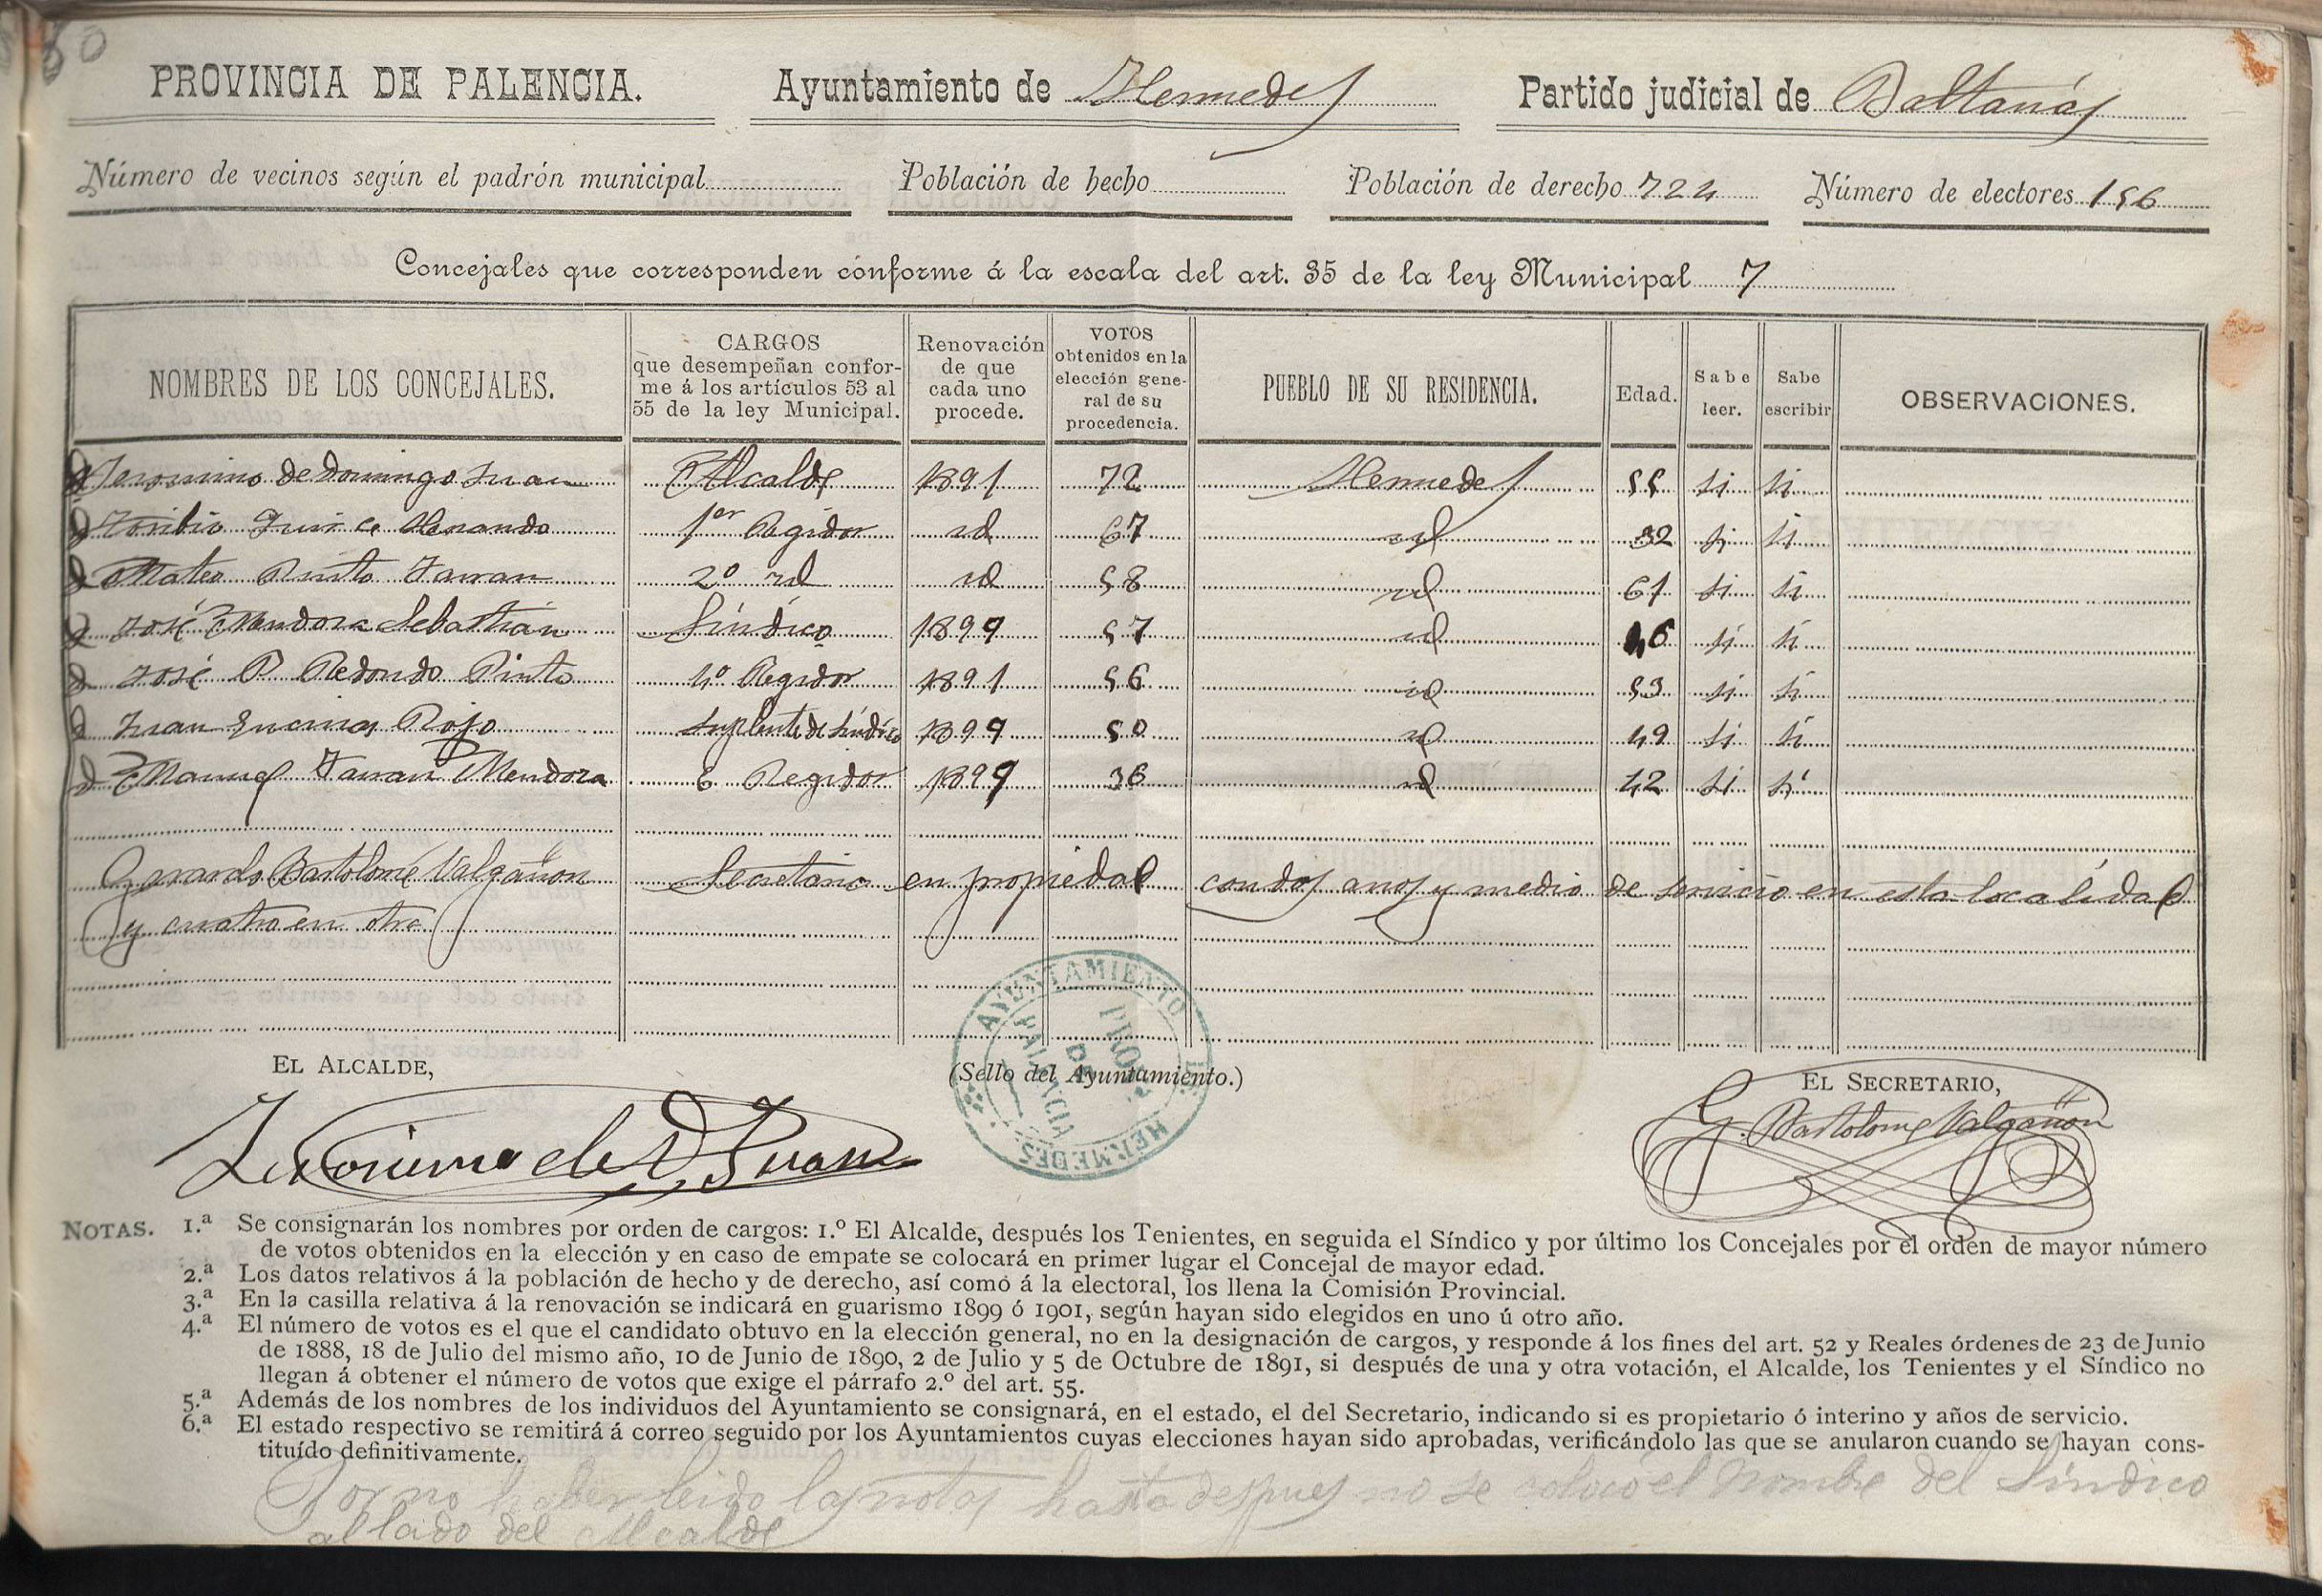 80
PROVINCIA DE PALENCIA. Ayuntamiento de Hermedes Partido judicial de Baltanás
Número de vecinos según el padrón municipal Población de hecho Población de derecho 724 Número de electores 156
Concejales que corresponden conforme á la escala del art. 35 de la ley Municipal 7
NOMBRES DE LOS CONCEJALES. CARGOS que desempeñan conforme á los artículos 53 al 55 de la ley Municipal. Renovación de que cada uno procede. VOTOS obtenidos en la elección general de su procedencia. PUEBLO DE SU RESIDENCIA. Edad. Sabe leer. Sabe escribir OBSERVACIONES.
D Jeronimo de Domingo Juan Alcalde 1891 72 Hermedes 55 si si
D Toribio Hernando 1er Regidor id 67 id 32 si si
D Mateo Pinto 2º id id 58 id 61 si si
D José Mendoza Sebastián Síndico 1899 57 id 46 si si
D José P Redondo Pinto 4º Regidor 1891 56 id 53 si si
D Juan Encinas Rojo Suplente de Síndico 1899 50 id 49 si si
D Manuel Mendoza 6 Regidor 1899 36 id 42 si si
Gerardo Bartolomé Valgañon Secretario en propiedad con dos años y medio de servicio en esta localidad
y cuatro en otra
EL ALCALDE,
(Sello del Ayuntamiento.)
EL SECRETARIO,
AYUNTAMIENTO DE HERMEDES
PROV. DE PALENCIA
Jeronimo de D Juan
G. Bartolome Valgañon
NOTAS. 1.ª Se consignarán los nombres por orden de cargos: 1.º El Alcalde, después los Tenientes, en seguida el Síndico y por último los Concejales por el orden de mayor número
de votos obtenidos en la elección y en caso de empate se colocará en primer lugar el Concejal de mayor edad.
2.ª Los datos relativos á la población de hecho y de derecho, así como á la electoral, los llena la Comisión Provincial.
3.ª En la casilla relativa á la renovación se indicará en guarismo 1899 ó 1901, según hayan sido elegidos en uno ú otro año.
4.ª El número de votos es el que el candidato obtuvo en la elección general, no en la designación de cargos, y responde á los fines del art. 52 y Reales órdenes de 23 de Junio
de 1888, 18 de Julio del mismo año, 10 de Junio de 1890, 2 de Julio y 5 de Octubre de 1891, si después de una y otra votación, el Alcalde, los Tenientes y el Síndico no
llegan á obtener el número de votos que exige el párrafo 2.º del art. 55.
5.ª Además de los nombres de los individuos del Ayuntamiento se consignará, en el estado, el del Secretario, indicando si es propietario ó interino y años de servicio.
6.ª El estado respectivo se remitirá á correo seguido por los Ayuntamientos cuyas elecciones hayan sido aprobadas, verificándolo las que se anularon cuando se hayan cons-
tituído definitivamente.
Por no haber leido las notas hasta despues no se coloco el Nombre del Síndico
al lado del Alcalde